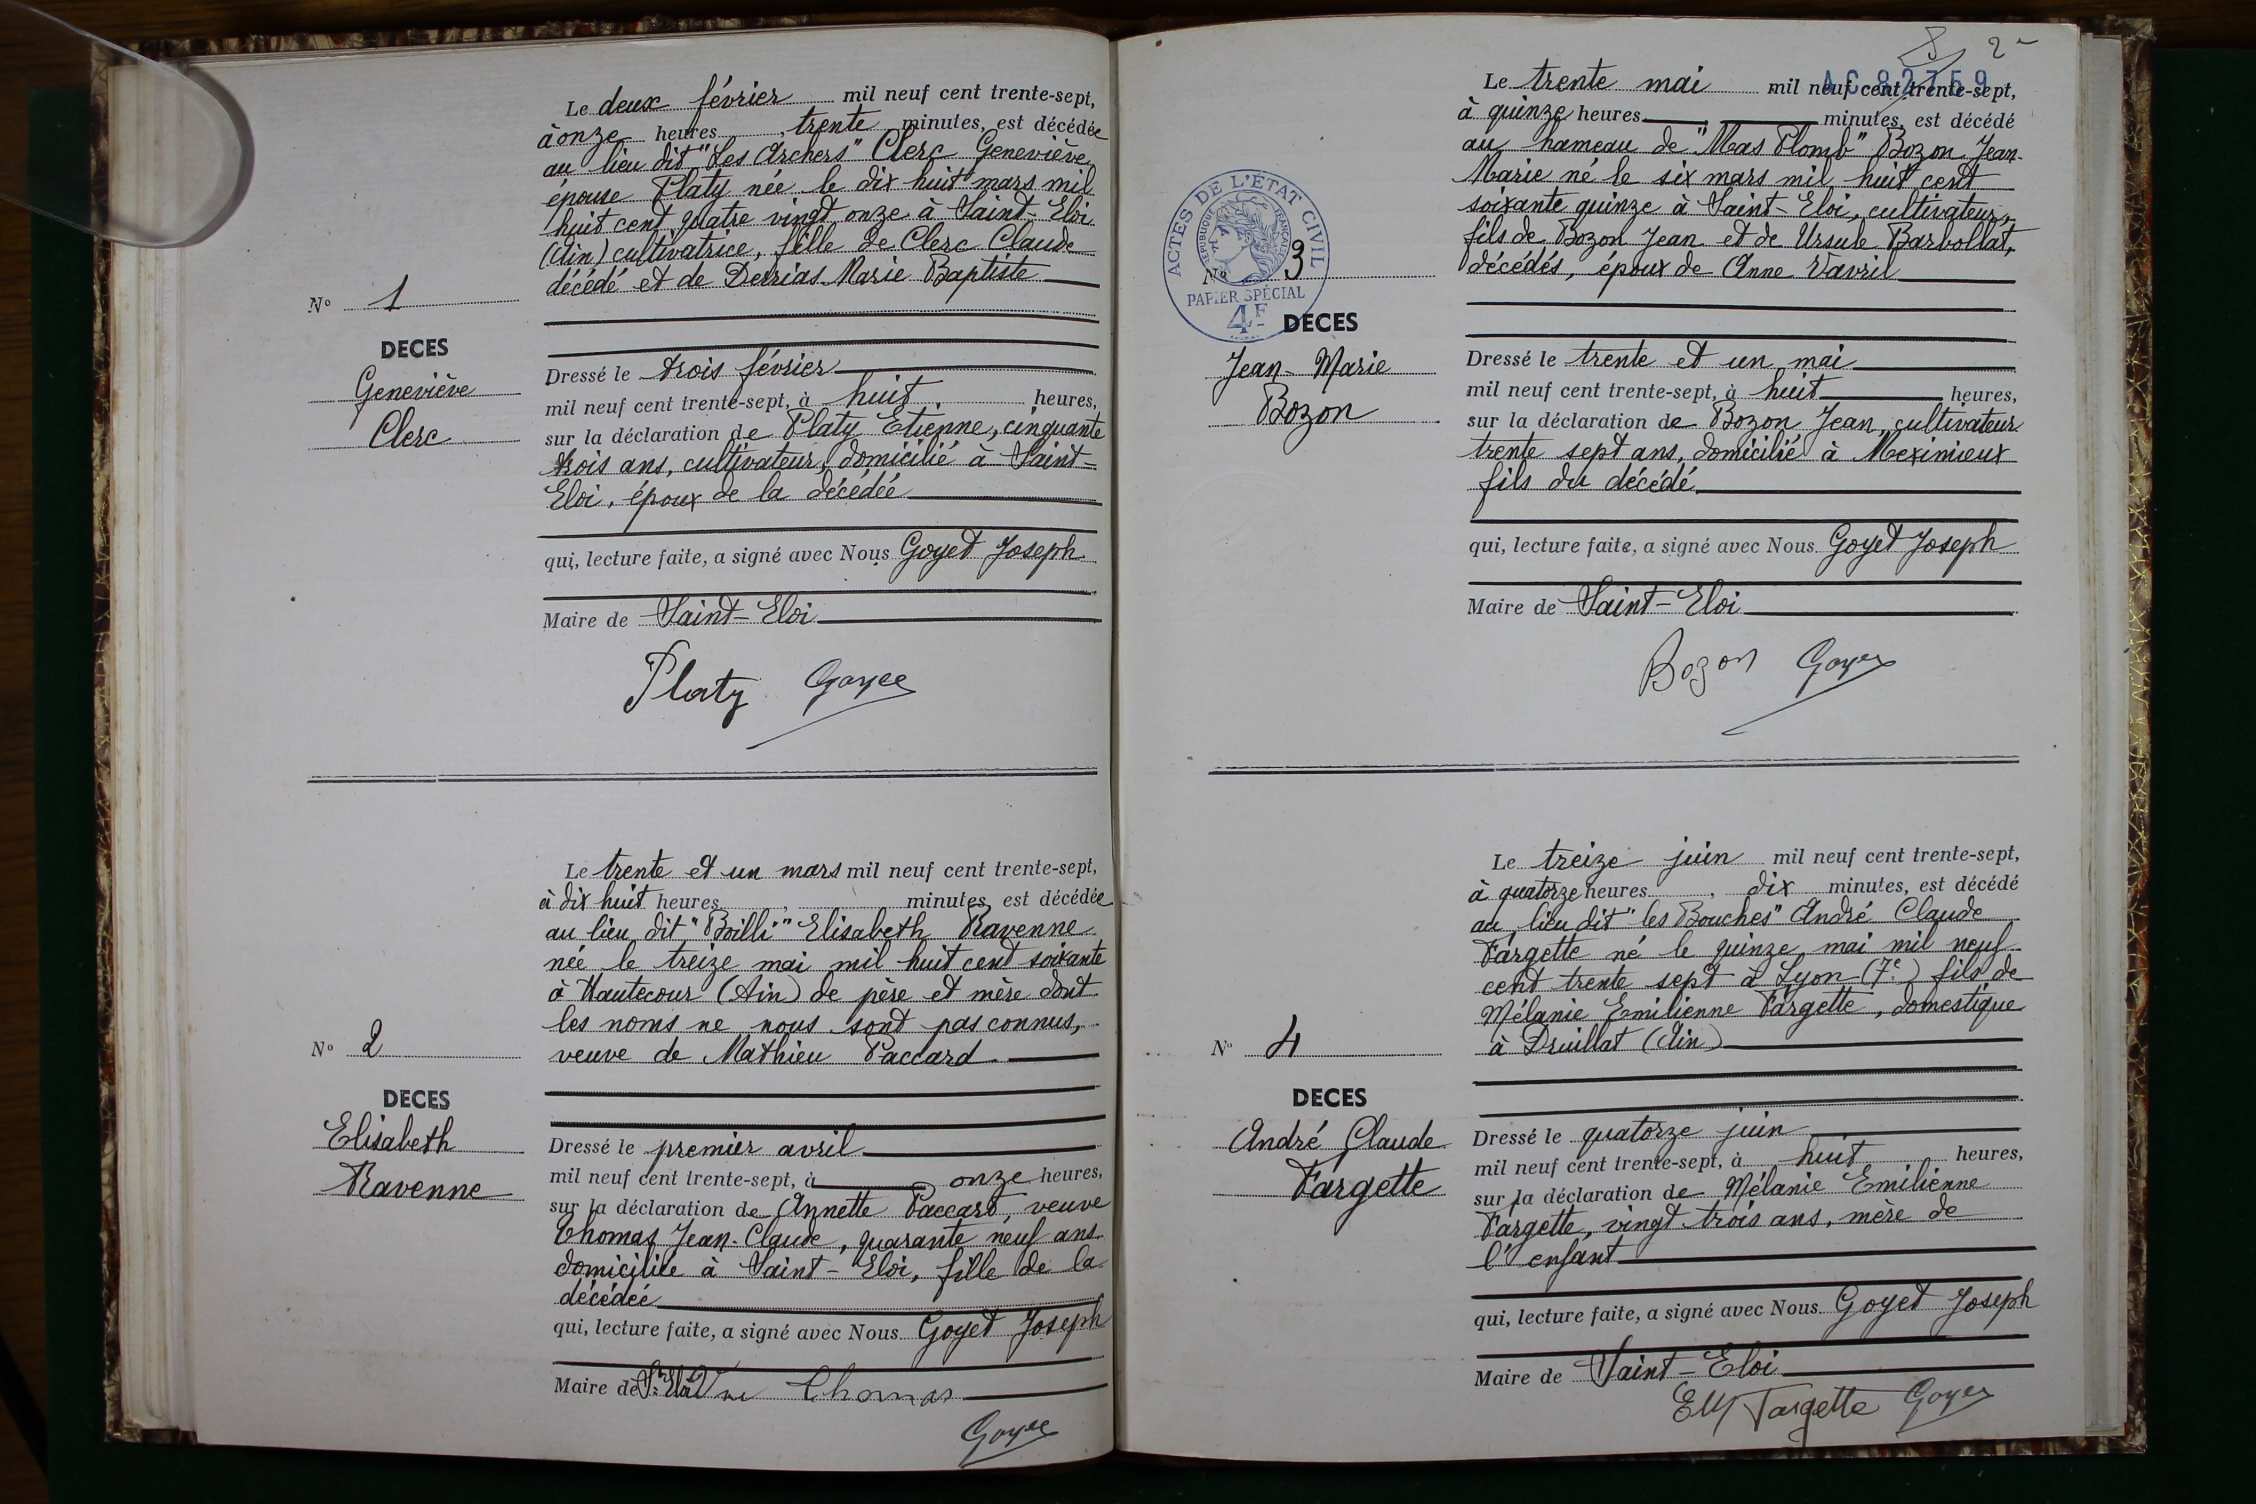 N° 1
DECES
Geneviève
Clerc
Le deux février mil neuf cent trente-sept,
à onze heures, trente minutes, est décédée
au lieu dit "Les Archers" Clerc Geneviève
épouse Platy née le dix huit mars mil
huit cent quatre vingt onze à Saint-Eloi
(Ain) cultivatrice, fille de Clerc Claude
décédé et de Derrias Marie Baptiste
Dressé le trois février
mil neuf cent trente-sept, à huit heures,
sur la déclaration de Platy Etienne, cinquante
trois ans, cultivateur, domicilié à Saint-
Eloi, époux de la décédée
qui, lecture faite, a signé avec Nous Goyet Joseph
Maire de Saint-Eloi
Platy Goyet
N° 2
DECES
Elisabeth
Ravenne
Le trente et un mars mil neuf cent trente-sept,
à dix huit heures, minutes, est décédée
au lieu dit "Brilli" Elisabeth Ravenne
née le treize mai mil huit cent soixante
à Hautecour (Ain) de père et mère dont
les noms ne nous sont pas connus,
veuve de Mathieu Paccard.
Dressé le premier avril
mil neuf cent trente-sept, à onze heures,
sur la déclaration de Annette Paccard, veuve
Thomas Jean-Claude, quarante neuf ans
domiciliée à Saint-Eloi, fille de la
décédée
qui, lecture faite, a signé avec Nous Goyet Joseph
Maire de St Eloi Vve Thomas
Goyet
2
AC 82759
ACTES DE L'ETAT CIVIL
REPUBLIQUE FRANÇAISE
PAPIER SPÉCIAL
4F
N° 3
DECES
Jean-Marie
Bozon
Le trente mai mil neuf cent trente-sept,
à quinze heures, minutes, est décédé
au hameau de "Mas Plomb" Bozon Jean-
Marie né le six mars mil huit cent
soixante quinze à Saint-Eloi, cultivateur,
fils de Bozon Jean et de Ursule Barbollat,
décédés, époux de Anne Vavril
Dressé le trente et un mai
mil neuf cent trente-sept, à huit heures,
sur la déclaration de Bozon Jean, cultivateur
trente sept ans, domicilié à Meximieux
fils du décédé
qui, lecture faite, a signé avec Nous Goyet Joseph
Maire de Saint-Eloi
Bozon Goyet
N° 4
DECES
André Claude
Fargette
Le treize juin mil neuf cent trente-sept,
à quatorze heures, dix minutes, est décédé
au lieu dit "les Bouches" André Claude
Fargette né le quinze mai mil neuf
cent trente sept à Lyon (7e) fils de
Mélanie Emilienne Fargette, domestique
à Druillat (Ain)
Dressé le quatorze juin
mil neuf cent trente-sept, à huit heures,
sur la déclaration de Mélanie Emilienne
Fargette, vingt trois ans, mère de
l'enfant
qui, lecture faite, a signé avec Nous Goyet Joseph
Maire de Saint-Eloi
EM Fargette Goyet